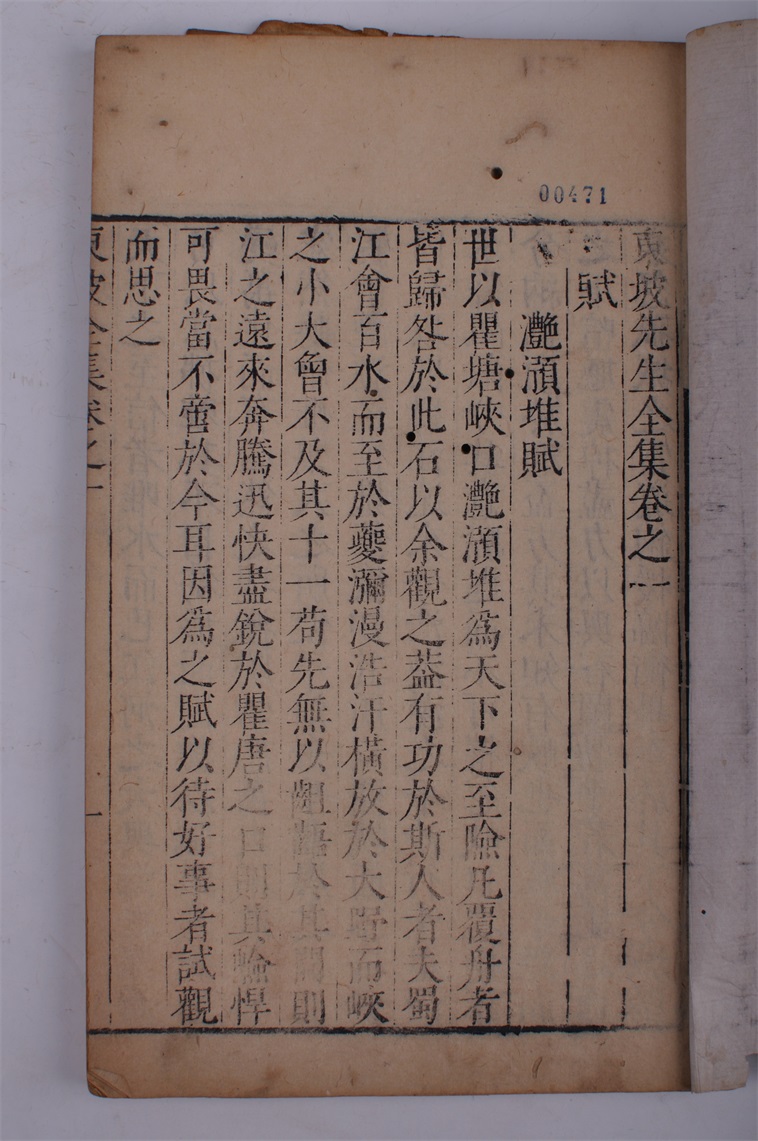 00471
東坡先生全集卷之一
賦
灔澦堆賦
世以瞿塘峽口灔澦堆為天下之至險凡覆舟者
皆歸咎於此石以余觀之葢有功於斯人者夫蜀
江會百水而至於夔瀰漫浩汗橫放於大野而峽
之小大曾不及其十一苟先無以齟齬於其間則
江之遠來奔騰迅快盡銳於瞿唐之口則其險悍
可畏當不啻於今耳因為之賦以待好事者試觀
而思之
東坡全集卷之一
一